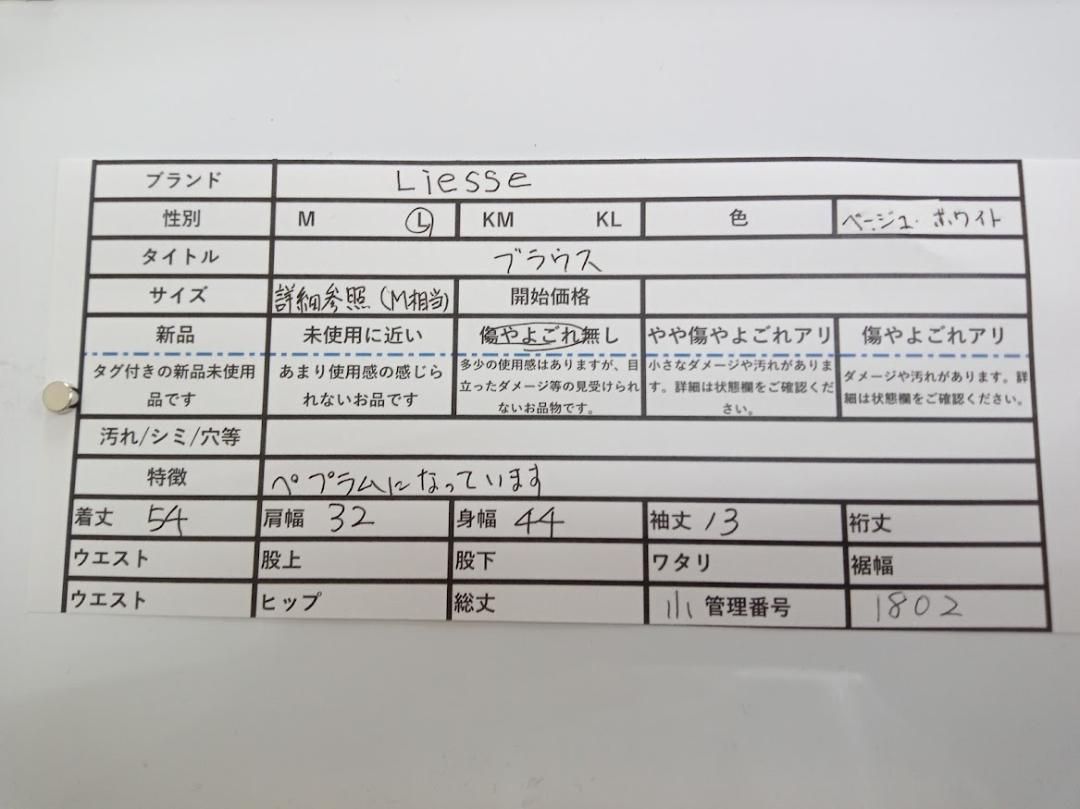 ブランド Liesse
性別 M L KM KL 色 ベージュ・ホワイト
タイトル ブラウス
サイズ 詳細参照(M相当) 開始価格
新品 未使用に近い 傷やよごれ無し やや傷やよごれアリ 傷やよごれアリ
タグ付きの新品未使用品です あまり使用感の感じられないお品です 多少の使用感はありますが、目立ったダメージ等の見受けられないお品物です。 小さなダメージや汚れがあります。詳細は状態欄をご確認ください。 ダメージや汚れがあります。詳細は状態欄をご確認ください。
汚れ/シミ/穴等
特徴 ペプラムになっています
着丈 54 肩幅 32 身幅 44 袖丈 13 裄丈
ウエスト 股上 股下 ワタリ 裾幅
ウエスト ヒップ 総丈 小 管理番号 1802